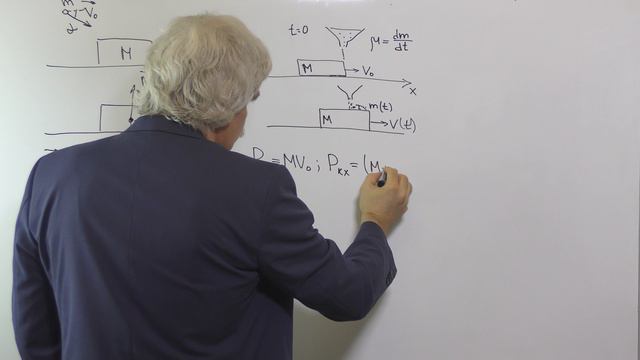 m
V₀
α
M
t=0
μ = dm/dt
M
V₀
x
m(t)
M
V(t)
P = MV₀ ; Pₖₓ = (M